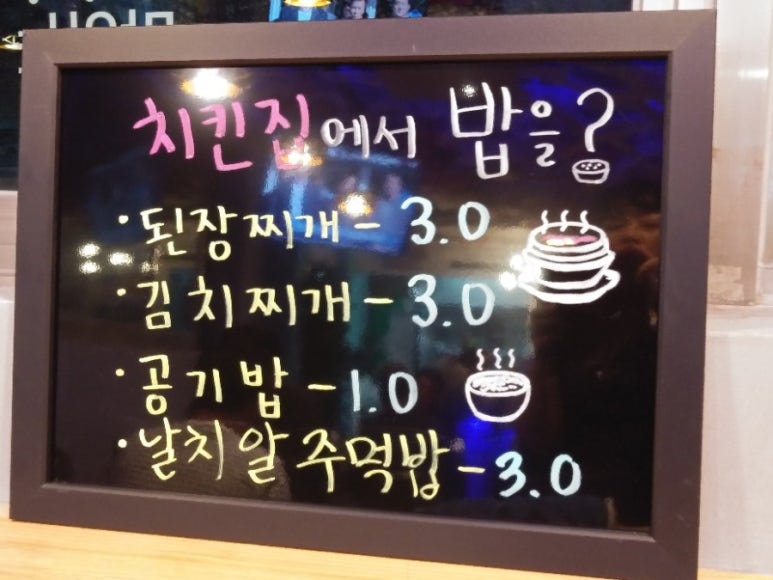 치킨집에서 밥을?
· 된장찌개 - 3.0
· 김치찌개 - 3.0
· 공기밥 - 1.0
· 날치알 주먹밥 - 3.0